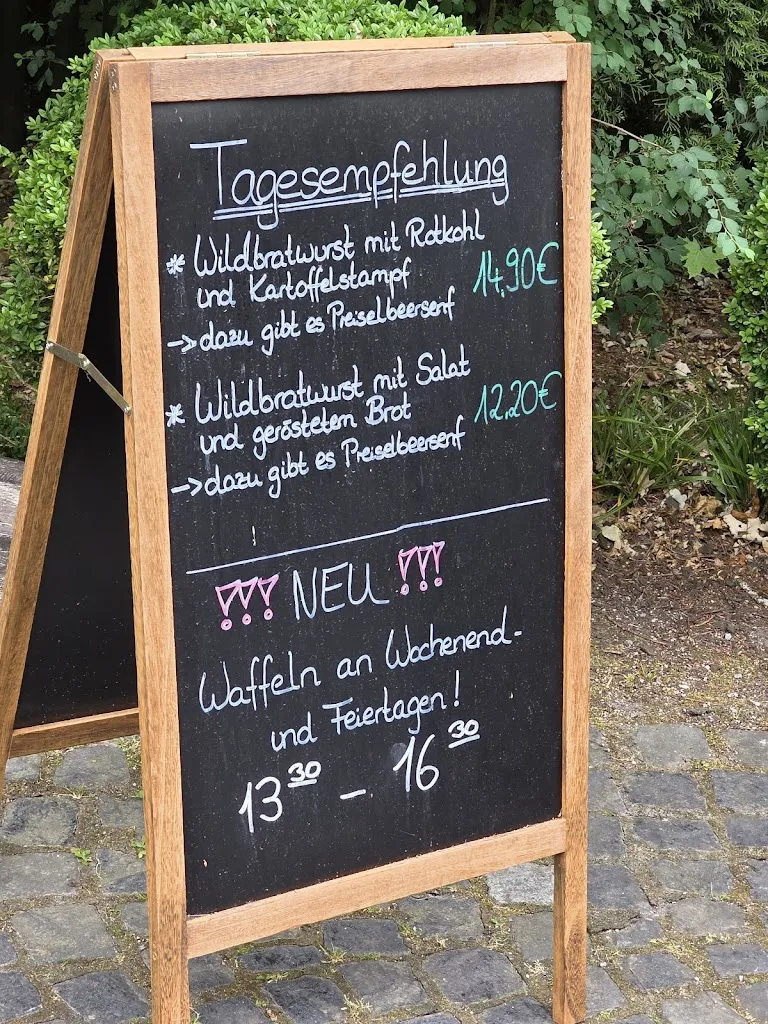 Tagesempfehlung
* Wildbratwurst mit Rotkohl
und Kartoffelstampf 14,90€
-> dazu gibt es Preiselbeersenf
* Wildbratwurst mit Salat
und geröstetem Brot 12,20€
-> dazu gibt es Preiselbeersenf
!!! NEU !!!
Waffeln an Wochenend-
und Feiertagen!
13³⁰ - 16³⁰